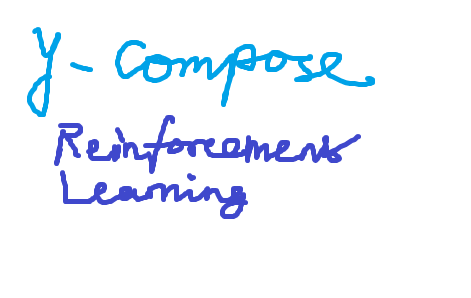 y-compose
Reinforcement
Learning